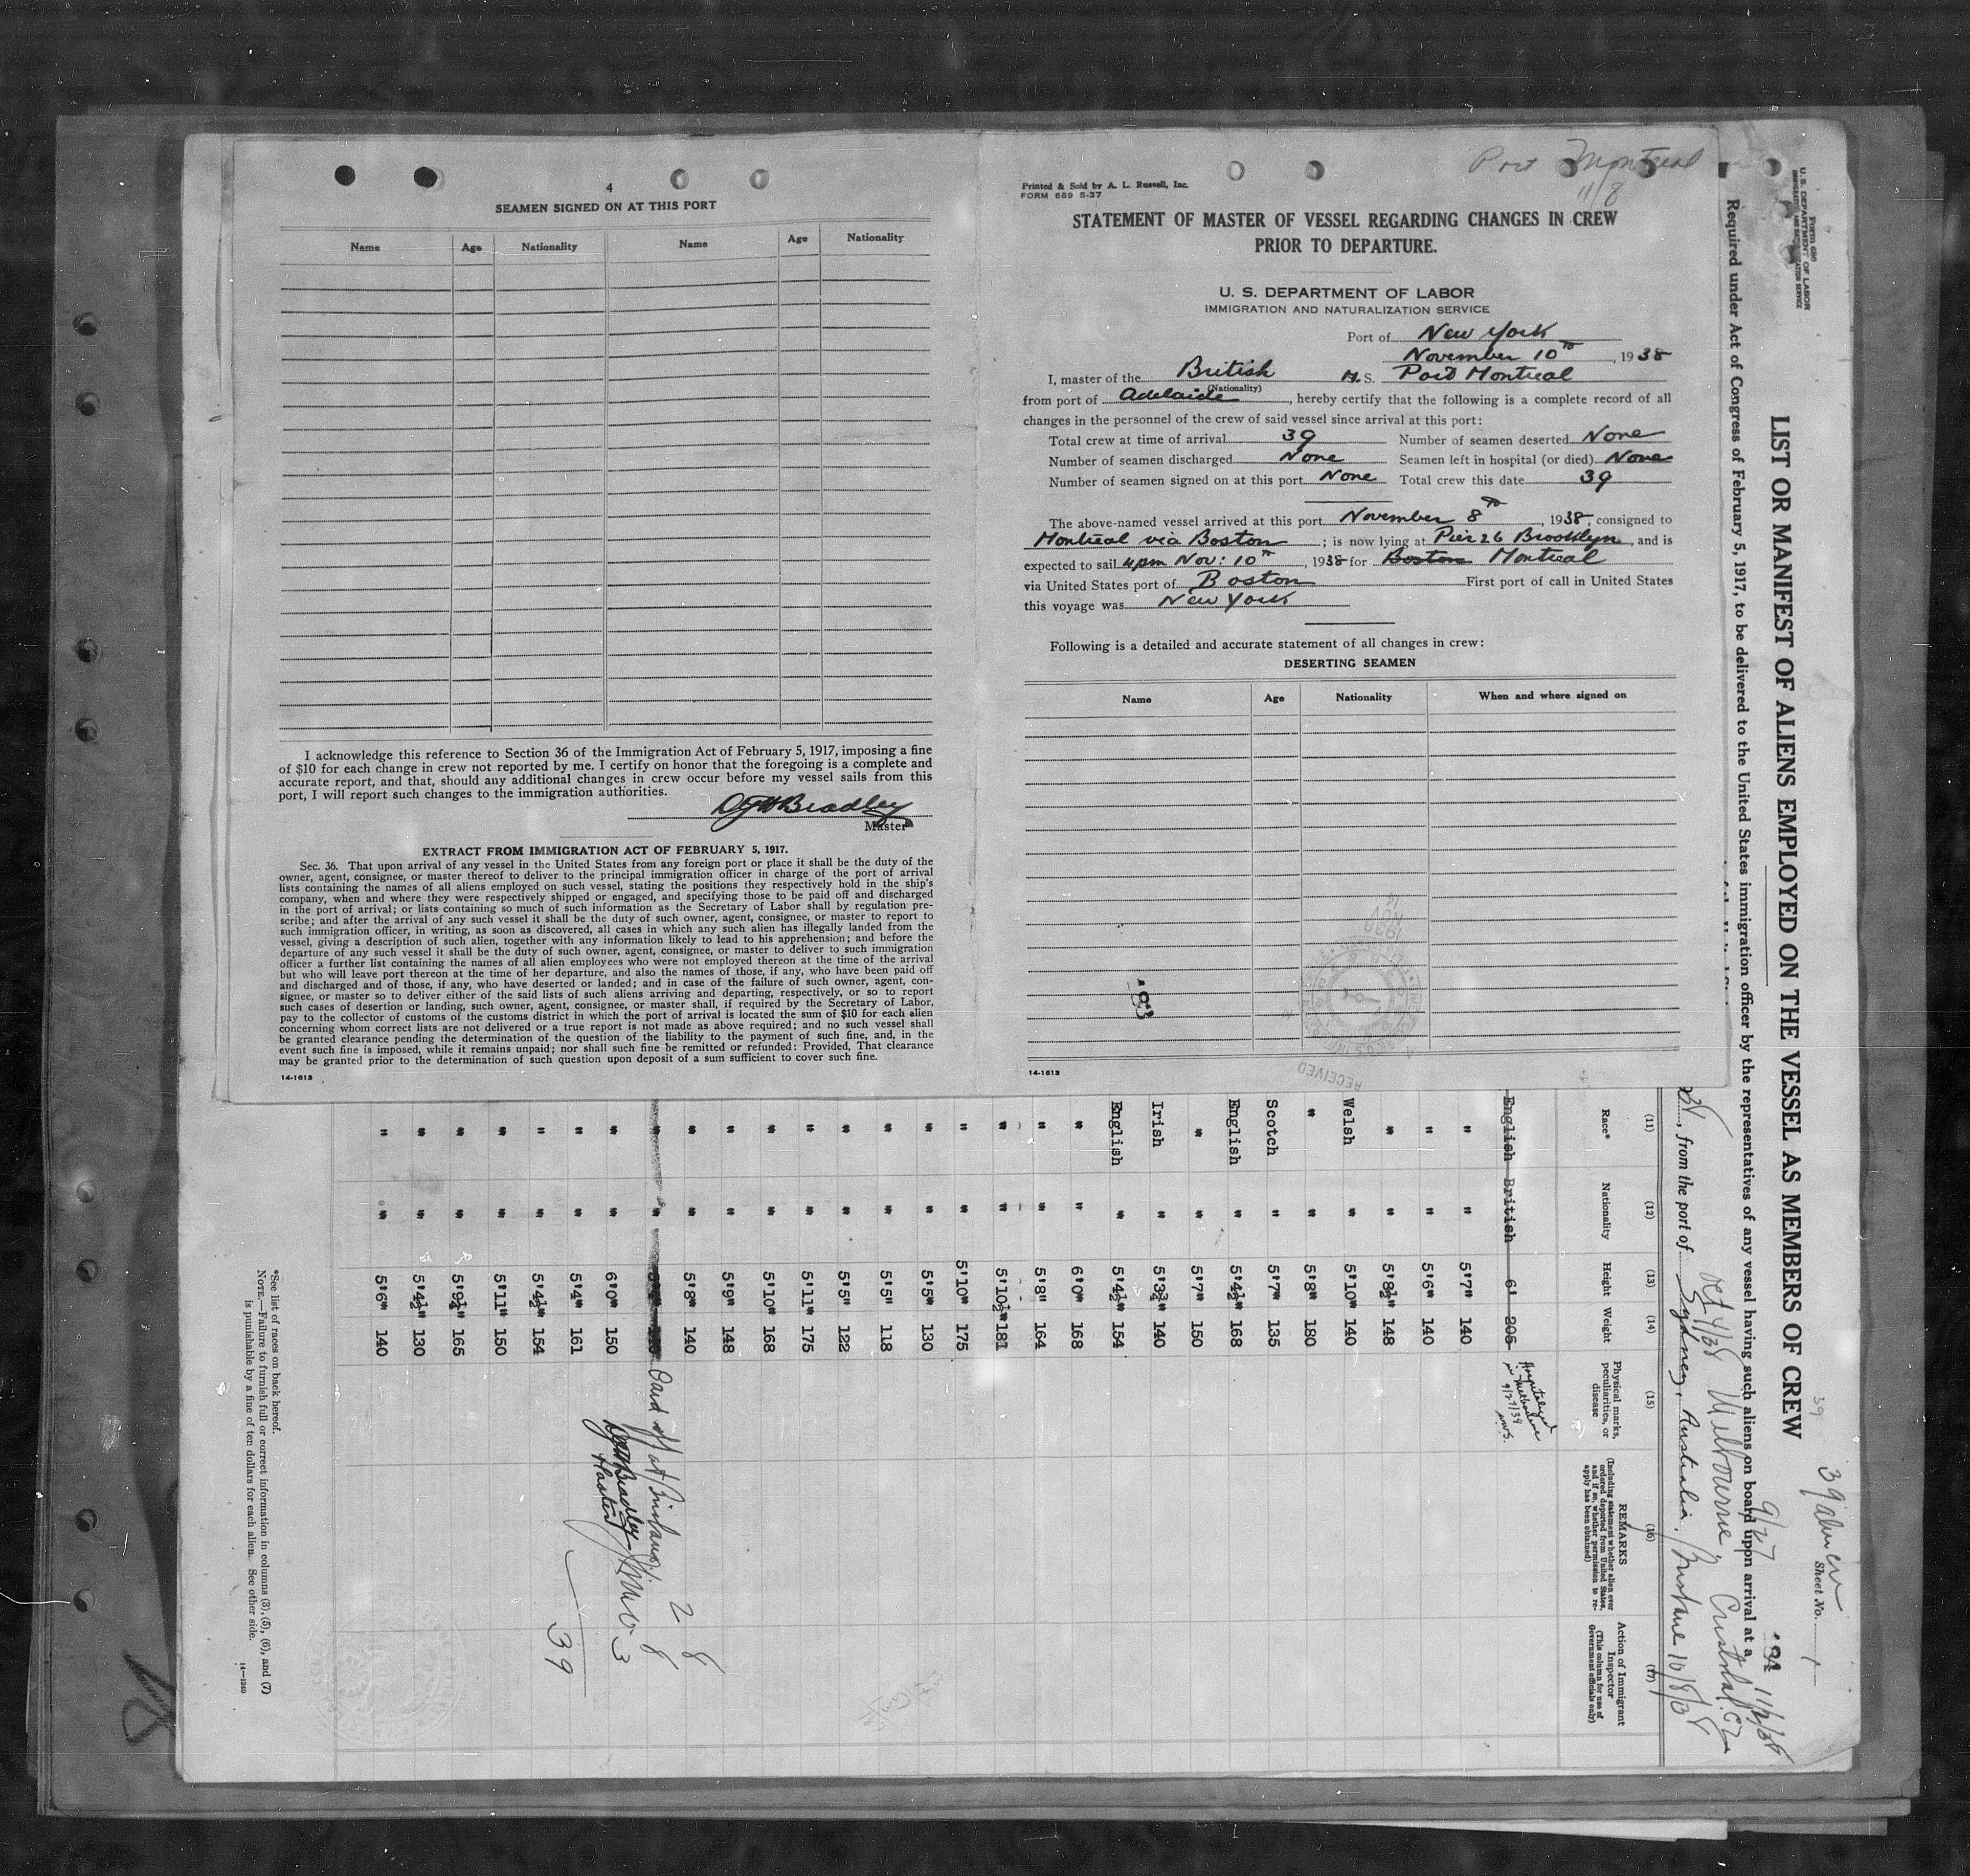 4
SEAMEN SIGNED ON AT THIS PORT
Name Age Nationality Name Age Nationality
I acknowledge this reference to Section 36 of the Immigration Act of February 5, 1917, imposing a fine
of $10 for each change in crew not reported by me. I certify on honor that the foregoing is a complete and
accurate report, and that, should any additional changes in crew occur before my vessel sails from this
port, I will report such changes to the immigration authorities.
Bradley
Master
EXTRACT FROM IMMIGRATION ACT OF FEBRUARY 5, 1917.
Sec. 36. That upon arrival of any vessel in the United States from any foreign port or place it shall be the duty of the
owner, agent, consignee, or master thereof to deliver to the principal immigration officer in charge of the port of arrival
lists containing the names of all aliens employed on such vessel, stating the positions they respectively hold in the ship's
company, when and where they were respectively shipped or engaged, and specifying those to be paid off and discharged
in the port of arrival; or lists containing so much of such information as the Secretary of Labor shall by regulation pre-
scribe; and after the arrival of any such vessel it shall be the duty of such owner, agent, consignee, or master to report to
such immigration officer, in writing, as soon as discovered, all cases in which any such alien has illegally landed from the
vessel, giving a description of such alien, together with any information likely to lead to his apprehension; and before the
departure of any such vessel it shall be the duty of such owner, agent, consignee, or master to deliver to such immigration
officer a further list containing the names of all alien employees who were not employed thereon at the time of the arrival
but who will leave port thereon at the time of her departure, and also the names of those, if any, who have been paid off
and discharged and of those, if any, who have deserted or landed; and in case of the failure of such owner, agent, con-
signee, or master so to deliver either of the said lists of such aliens arriving and departing, respectively, or so to report
such cases of desertion or landing, such owner, agent, consignee, or master shall, if required by the Secretary of Labor,
pay to the collector of customs of the customs district in which the port of arrival is located the sum of $10 for each alien
concerning whom correct lists are not delivered or a true report is not made as above required; and no such vessel shall
be granted clearance pending the determination of the question of the liability to the payment of such fine, and, in the
event such fine is imposed, while it remains unpaid; nor shall such fine be remitted or refunded: Provided, That clearance
may be granted prior to the determination of such question upon deposit of a sum sufficient to cover such fine.
14-1613
Port Montreal
11/8
Printed & Sold by A. L. Russell, Inc.
FORM 689 5-37
STATEMENT OF MASTER OF VESSEL REGARDING CHANGES IN CREW
PRIOR TO DEPARTURE.
U. S. DEPARTMENT OF LABOR
IMMIGRATION AND NATURALIZATION SERVICE
Port of New York
November 10th, 1938
I, master of the British M.S. Port Montreal
(Nationality)
from port of Adelaide, hereby certify that the following is a complete record of all
changes in the personnel of the crew of said vessel since arrival at this port:
Total crew at time of arrival 39 Number of seamen deserted None
Number of seamen discharged None Seamen left in hospital (or died) None
Number of seamen signed on at this port None Total crew this date 39
The above-named vessel arrived at this port November 8th, 1938, consigned to
Montreal via Boston; is now lying at Pier 26 Brooklyn, and is
expected to sail 4pm Nov: 10th, 1938 for Boston Montreal
via United States port of Boston First port of call in United States
this voyage was New York
Following is a detailed and accurate statement of all changes in crew:
DESERTING SEAMEN
Name Age Nationality When and where signed on
RECEIVED
14-1613
Form 680
U. S. DEPARTMENT OF LABOR
LIST OR MANIFEST OF ALIENS EMPLOYED ON THE VESSEL AS MEMBERS OF CREW
Sheet No. 1
39
Required under Act of Congress of February 5, 1917, to be delivered to the United States immigration officer by the representatives of any vessel having such aliens on board upon arrival at a
9/27 Melbourne, Cristobal, C.Z. 11/2/38
, from the port of Sydney, Australia, Brisbane 10/8/38
(11) (12) (13) (14) (15) (16) (17)
Race* Nationality Height Weight Physical marks, peculiarities, or disease REMARKS (Including statement whether alien ever ordered deported from United States, and if so, whether permission to re-apply has been obtained) Action of Immigrant Inspector (This column for use of Government officials only)
English British 6' 205 Hospitalized in Melbourne
" " 5'7" 140
" " 5'6" 140
" " 5'8½" 148
Welsh " 5'10" 140
" " 5'8" 180
Scotch " 5'7" 135
English " 5'4½" 168
" " 5'7" 150
Irish " 5'3¾" 140
English " 5'4½" 154
" " 6'0" 168
" " 5'8" 164
" " 5'10½" 181
" " 5'10" 175
" " 5'5" 130
" " 5'5" 118
" " 5'5" 122
" " 5'11" 175
" " 5'10" 168
" " 5'9" 148
" " 5'8" 140
Paid off at Brisbane
" " 6'0" 150 Bradley
Master
" " 5'4" 161
" " 5'4½" 154
39
" " 5'11" 150
" " 5'9¼" 165
" " 5'4½" 130
" " 5'6" 140
*See list of races on back hereof.
NOTE.—Failure to furnish full or correct information in columns (3), (5), (6), and (7)
is punishable by a fine of ten dollars for each alien. See other side.
14—1240